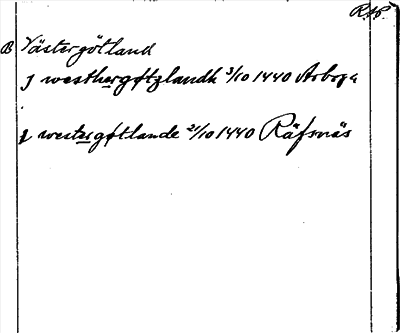 RAP.
B Västergötland
J westhergøtzlandh 3/10 1440 Arboga
J westergøtlande 21/10 1440 Räfsnäs